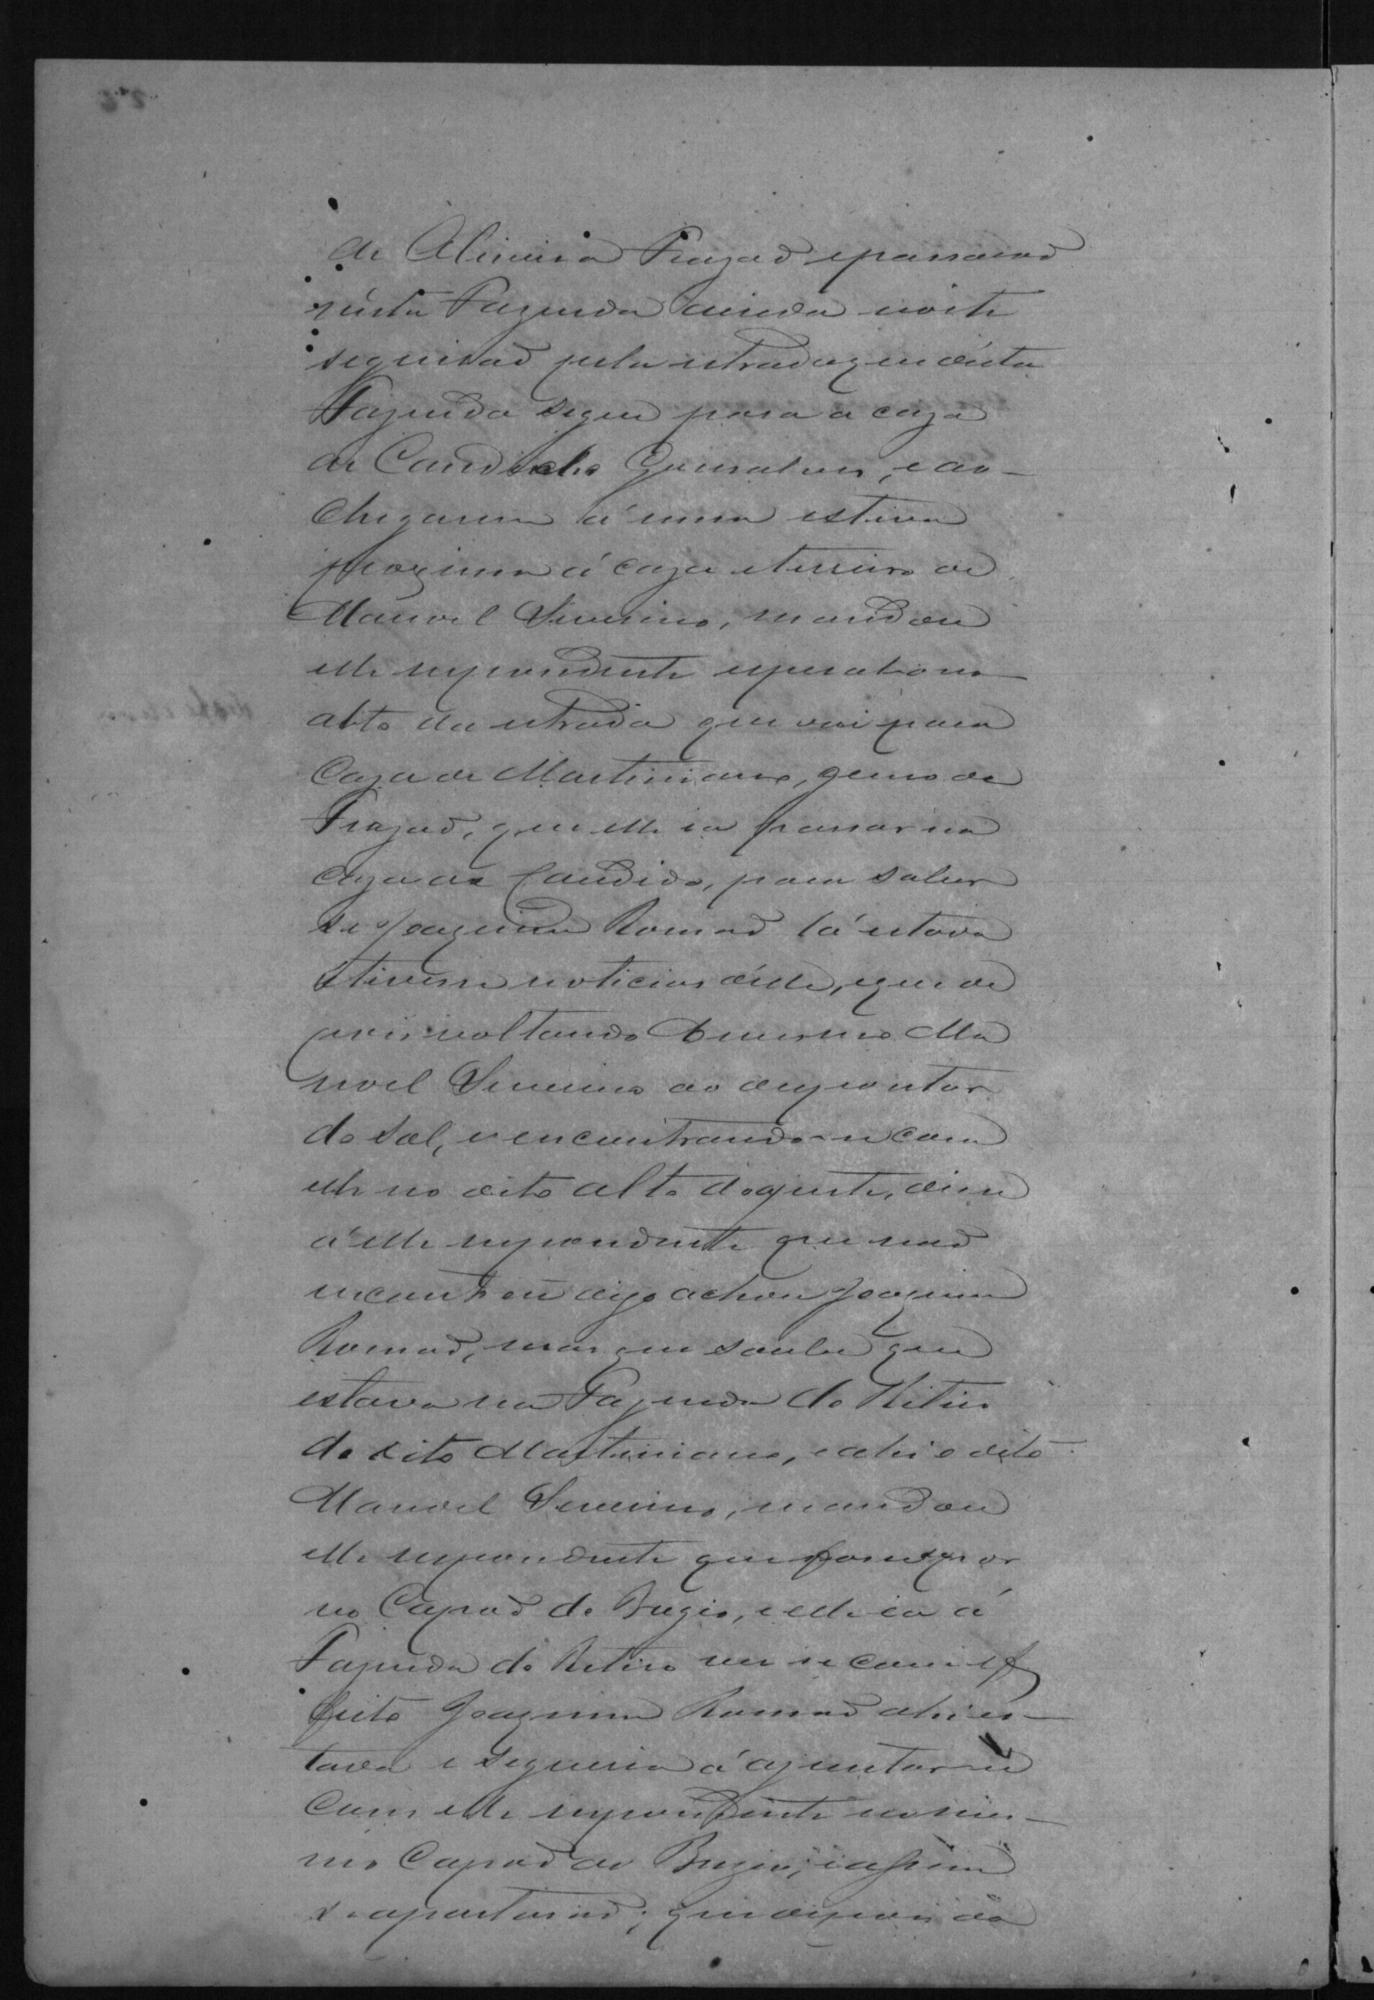 de Oliveira Frazaõ e passaraõ
n'esta Fazenda ainda noite
seguiraõ pela estrada que d'esta
Fazenda segue para a caza
de Candido Gonsalves, e ao
chegarem á uma estiva
proxima á caza e terreiro de
Manoel Severino, mandou
elle respondente esperal-o no
alto da estrada que vai para
Caza de Martiniano, genro de
Frazaõ, que elle ia passar na
caza de Candido, para saber
se Joaquim Romaõ lá estava
e tivesse noticias d'elle, e que de
pois voltando o mesmo Ma
noel Severino ao despontar
do sol, e encontrando-se com
elle no dito alto do ajuste, disse
á elle respondente que naõ
encontrou digo achou Joaquim
Romaõ, mas que soube que
estava na Fazenda do Retiro
do dito Martiniano, e ahi o dito
Manoel Severino, mandou
elle respondente que fosse
no Capaõ do Bugio, e elle ia á
Fazenda do Retiro ver se com ef
feito Joaquim Romaõ ahi es-
tava e seguiria á ajuntar-se
Com elle respondente no mes-
mo Capaõ do Bugio; e assim
se apartaraõ; que depois da